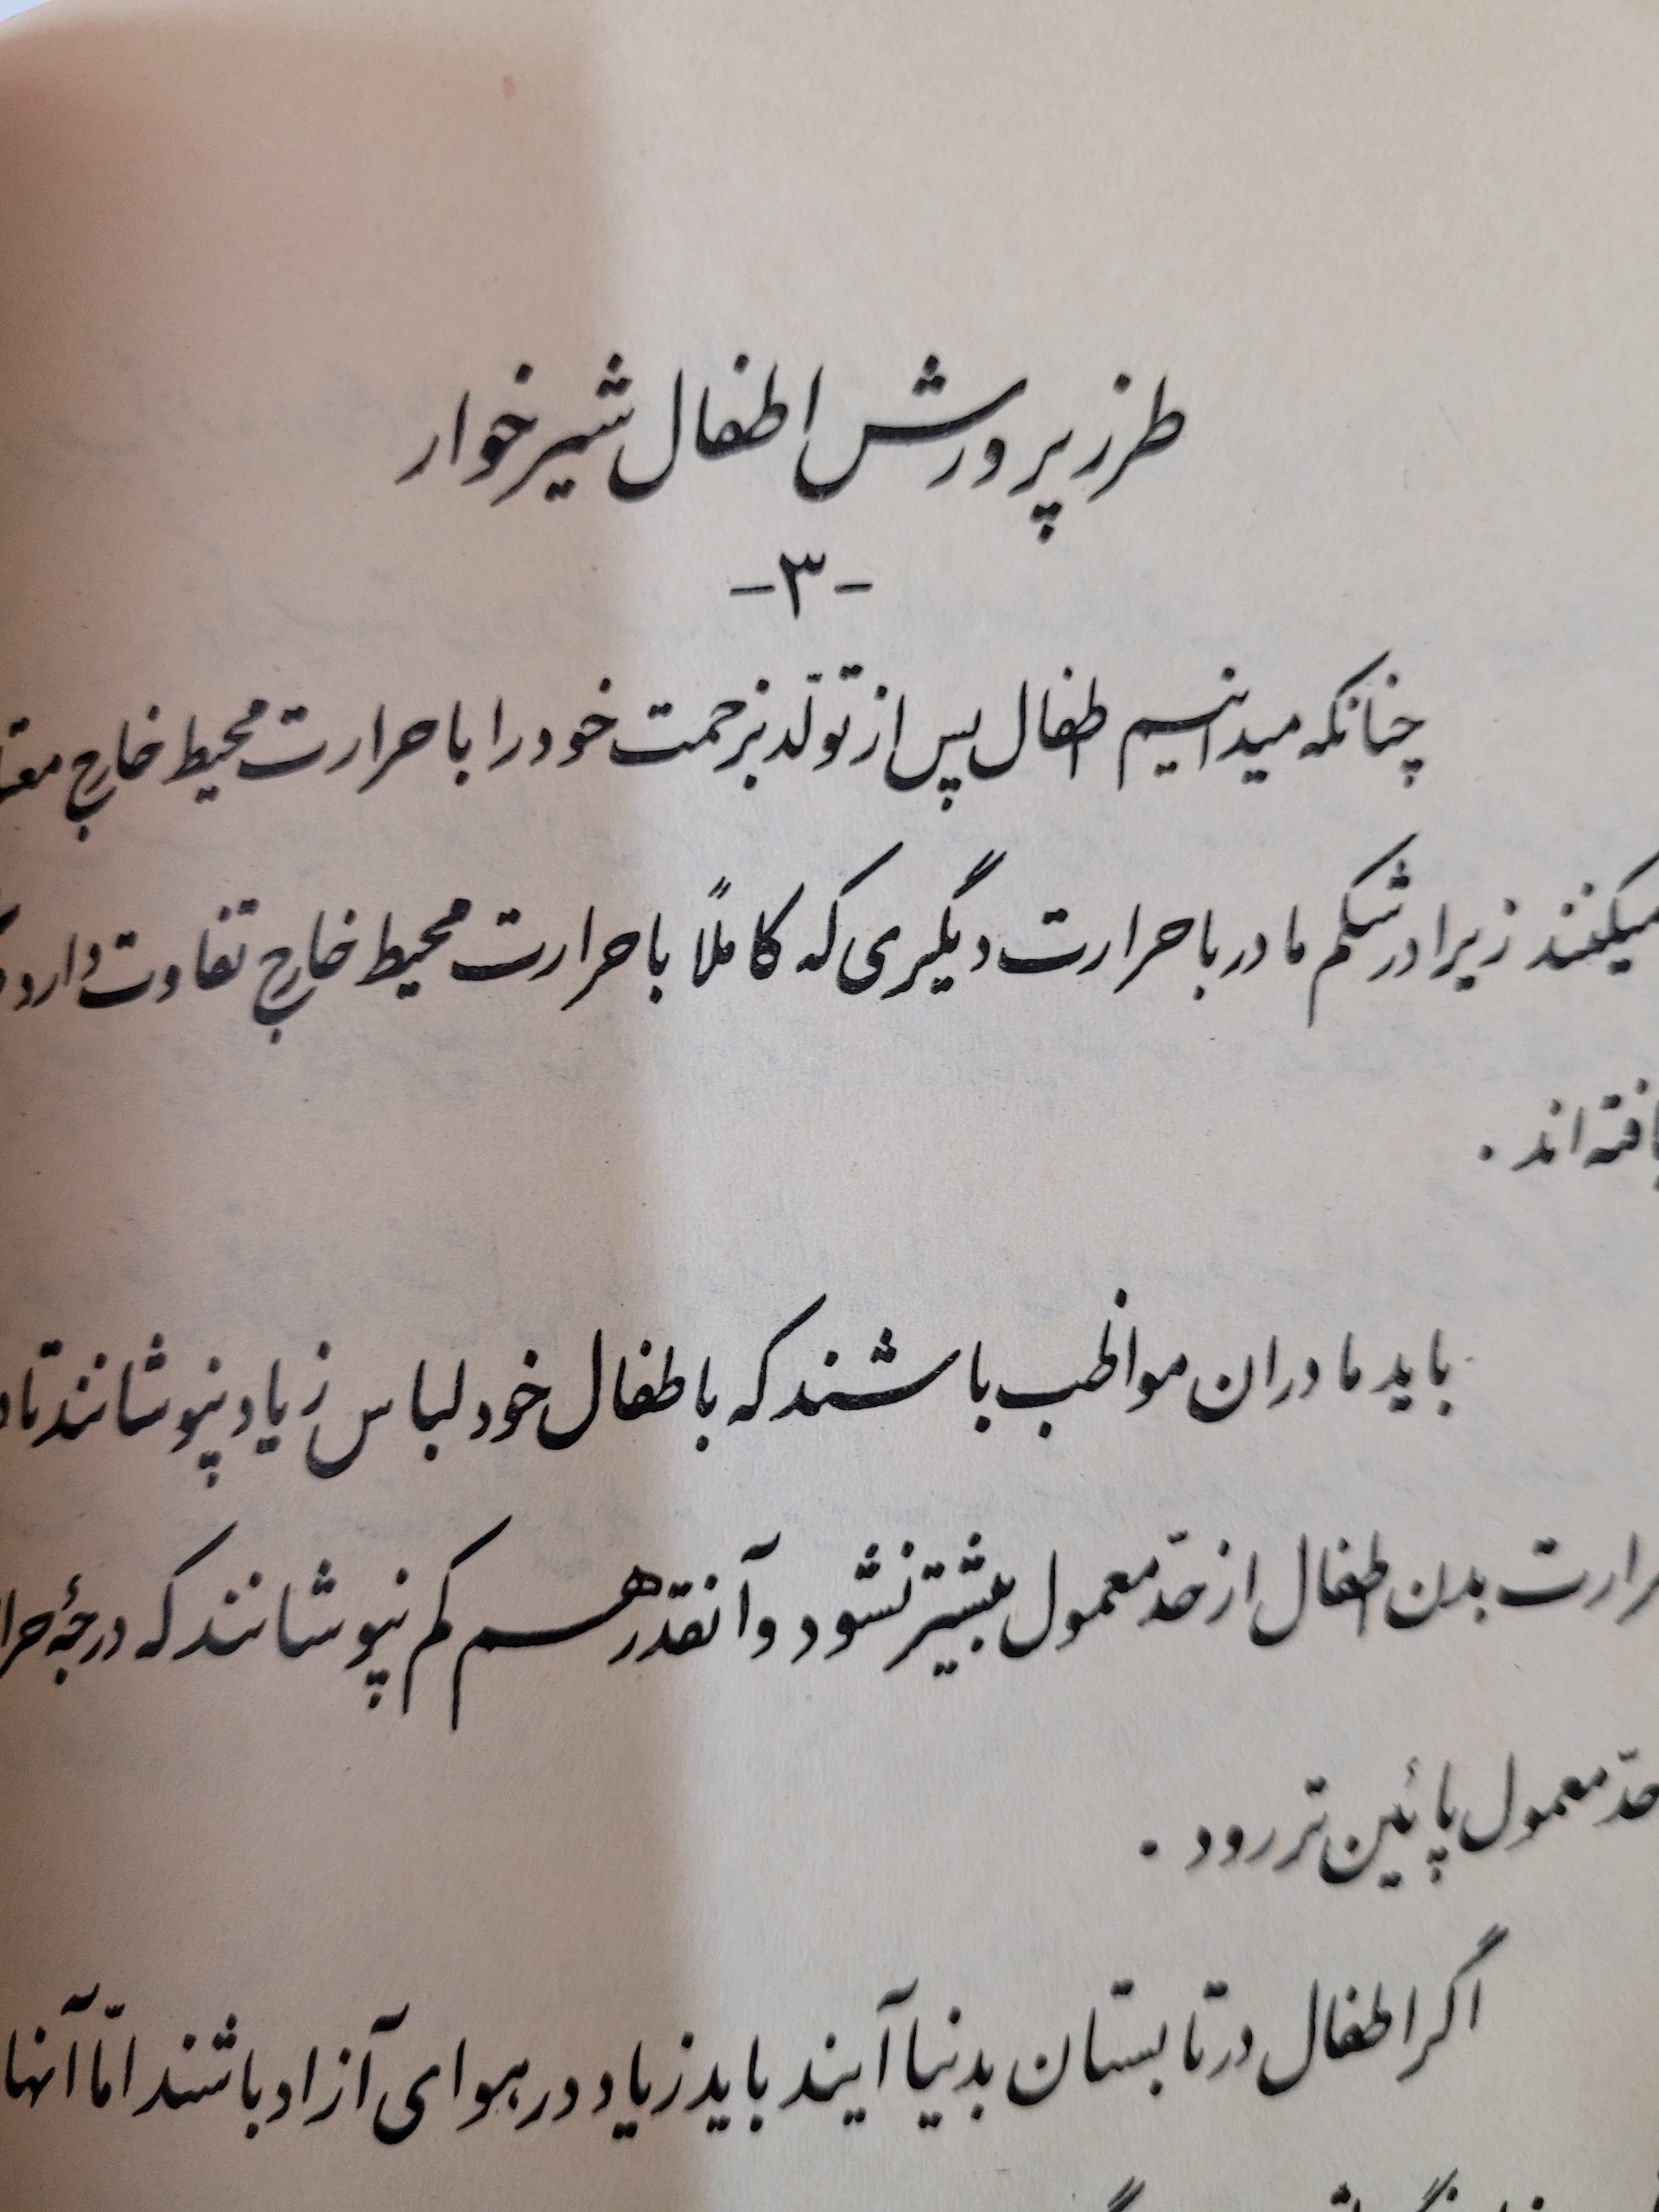 طرز پرورش اطفال شیرخوار
-۳-
چنانکه میدانیم اطفال پس از تولّد بزحمت خود را با حرارت محیط خارج
میکنند زیرا در شکم مادر با حرارت دیگری که کاملاً با حرارت محیط خارج تفاوت دارد
یافته‌اند .
باید مادران مواظب باشند که باطفال خود لباس زیاد نپوشانند تا
بدن اطفال از حدّ معمول بیشتر نشود و آنقدر هم کم نپوشانند که درجهٔ
حدّ معمول پائین‌تر رود .
اگر اطفال در تابستان بدنیا آیند باید زیاد در هوای آزاد باشند امّا آنها